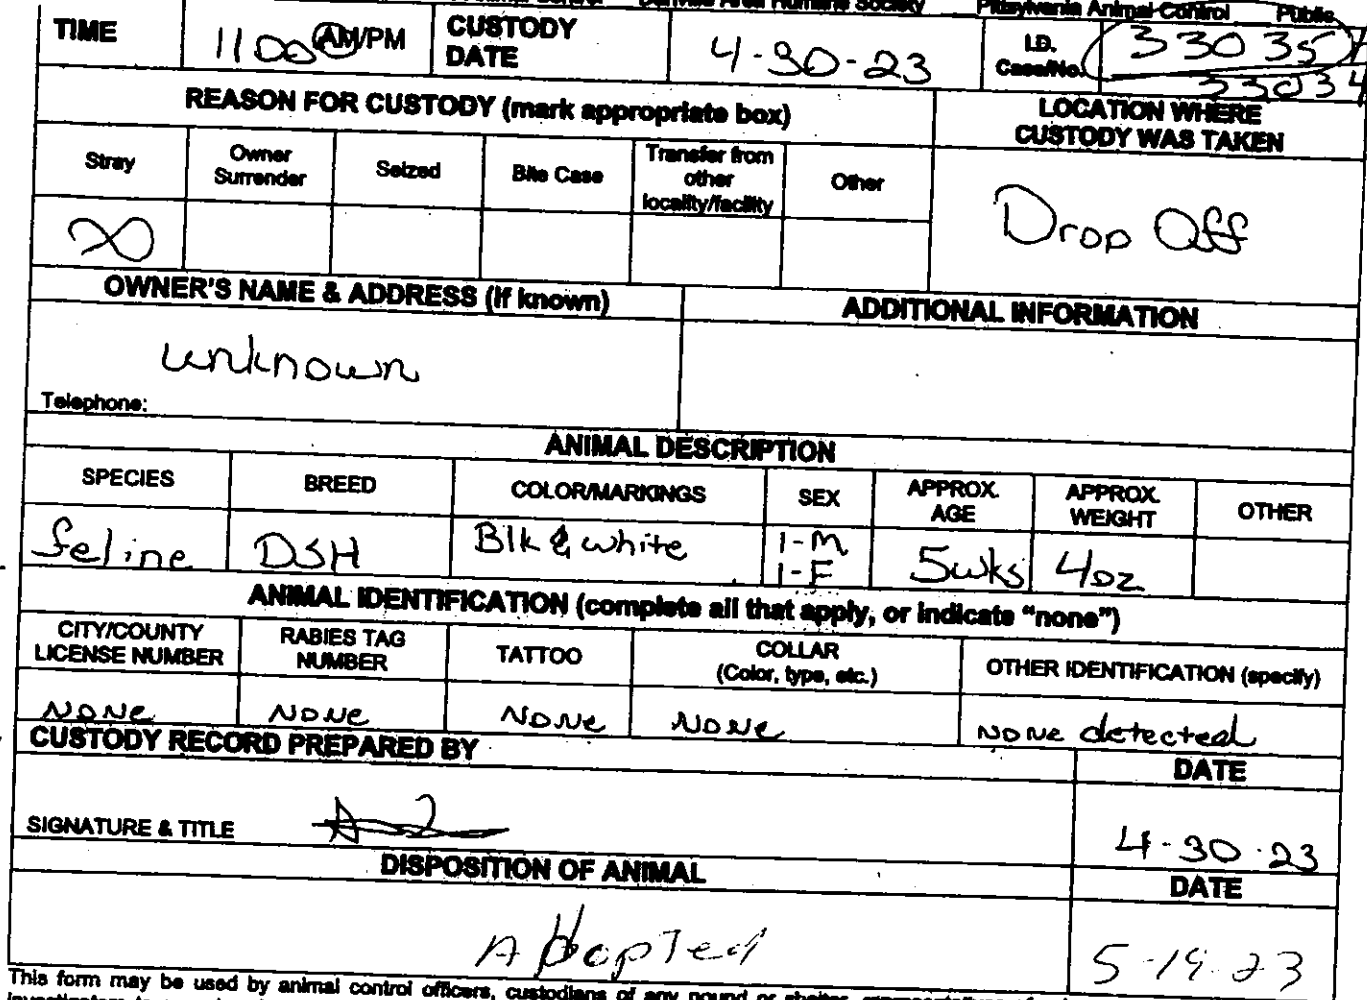 Danville Area Humane Society Pittsylvania Animal Control Public
TIME 1100 AM/PM CUSTODY DATE 4-30-23 I.D. Case/No. 330357
33034
REASON FOR CUSTODY (mark appropriate box) LOCATION WHERE CUSTODY WAS TAKEN
Stray Owner Surrender Seized Bite Case Transfer from other locality/facility Other
Drop Off
OWNER'S NAME & ADDRESS (if known) ADDITIONAL INFORMATION
unknown
Telephone:
ANIMAL DESCRIPTION
SPECIES BREED COLOR/MARKINGS SEX APPROX. AGE APPROX. WEIGHT OTHER
feline DSH Blk & white 1-M 1-F 5wks 4oz
ANIMAL IDENTIFICATION (complete all that apply, or indicate "none")
CITY/COUNTY LICENSE NUMBER RABIES TAG NUMBER TATTOO COLLAR (Color, type, etc.) OTHER IDENTIFICATION (specify)
None None None None None detected
CUSTODY RECORD PREPARED BY DATE
SIGNATURE & TITLE 4-30-23
DISPOSITION OF ANIMAL DATE
Adopted 5-19-23
This form may be used by animal control officers, custodians of any pound or shelter,